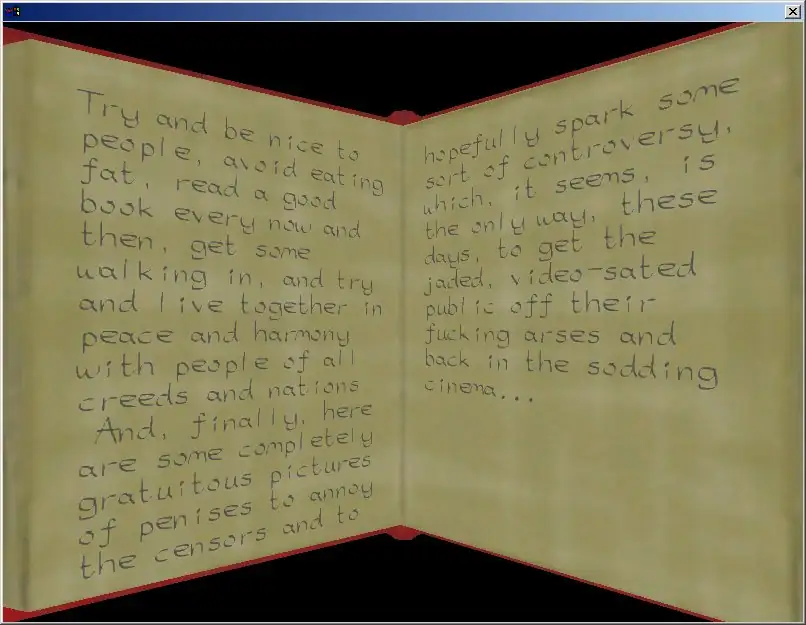 Try and be nice to
people, avoid eating
fat, read a good
book every now and
then, get some
walking in, and try
and live together in
peace and harmony
with people of all
creeds and nations
And, finally, here
are some completely
gratuitous pictures
of penises to annoy
the censors and to
hopefully spark some
sort of controversy,
which, it seems, is
the only way, these
days, to get the
jaded, video-sated
public off their
fucking arses and
back in the sodding
cinema...